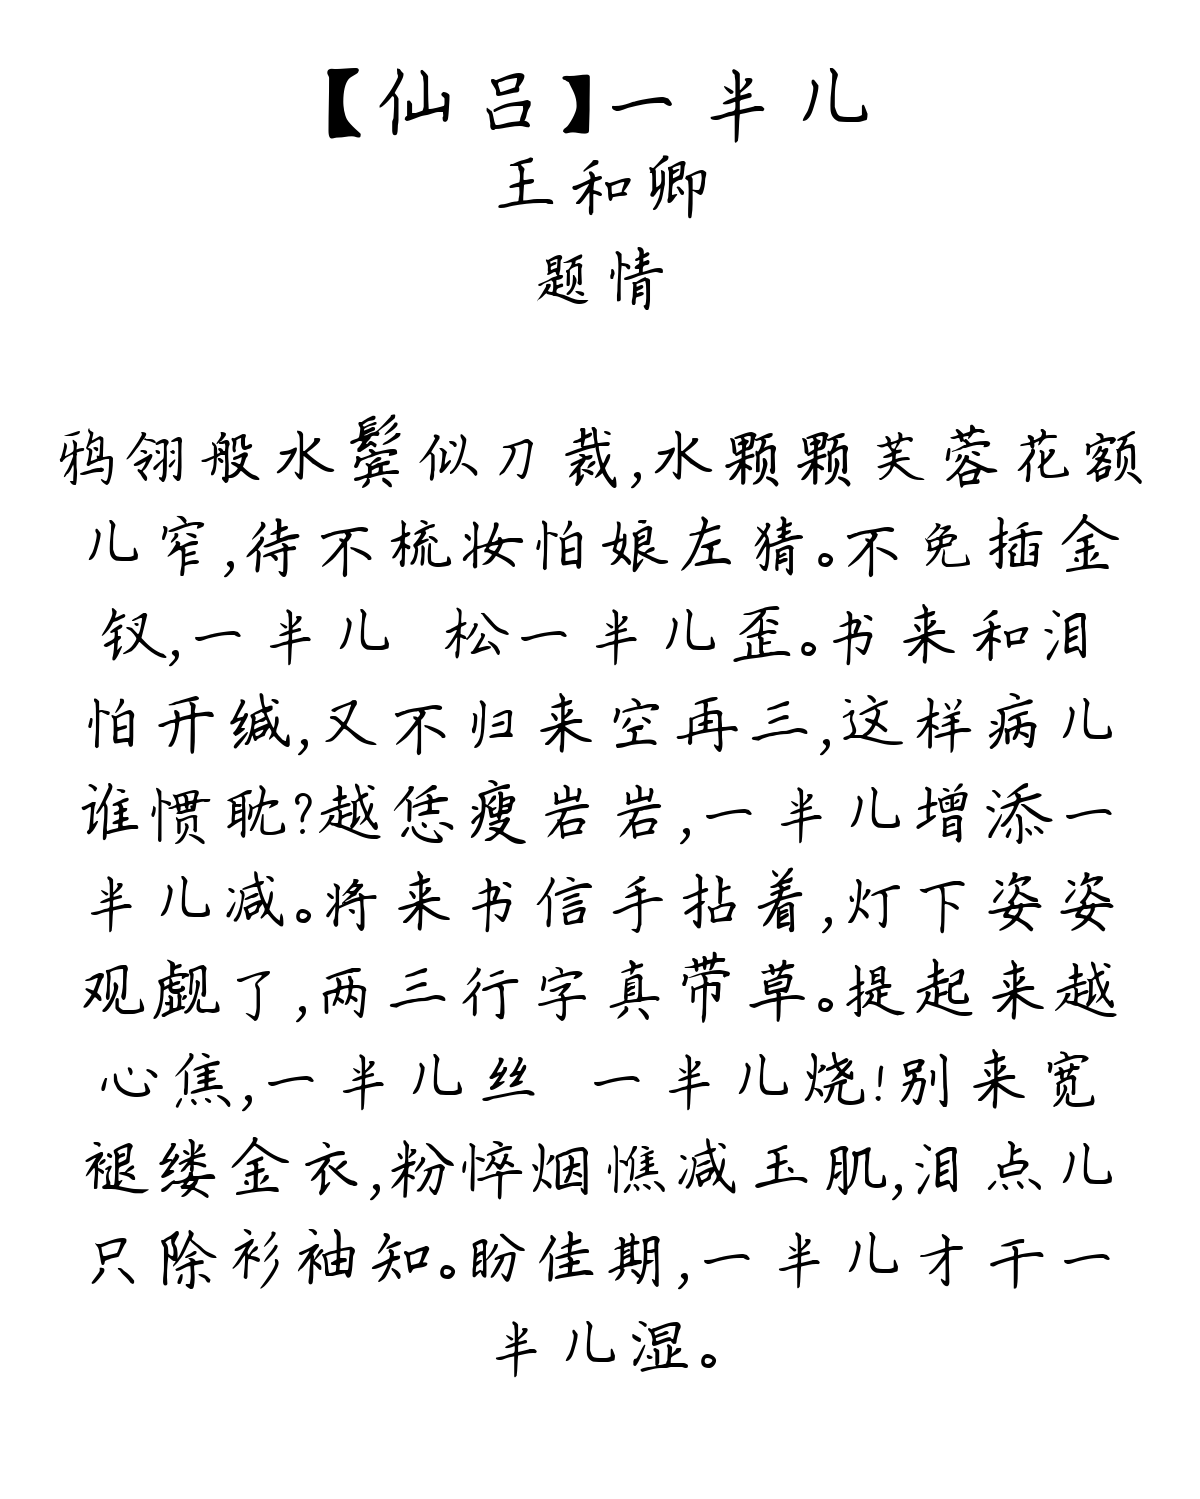 【仙吕】一半儿
王和卿
题情
鸦翎般水鬓似刀裁,水颗颗芙蓉花额
儿窄,待不梳妆怕娘左猜。不免插金
钗,一半儿 松一半儿歪。书来和泪
怕开缄,又不归来空再三,这样病儿
谁惯耽?越恁瘦岩岩,一半儿增添一
半儿减。将来书信手拈着,灯下姿姿
观觑了,两三行字真带草。提起来越
心焦,一半儿丝 一半儿烧!别来宽
褪缕金衣,粉悴烟憔减玉肌,泪点儿
只除衫袖知。盼佳期,一半儿才干一
半儿湿。